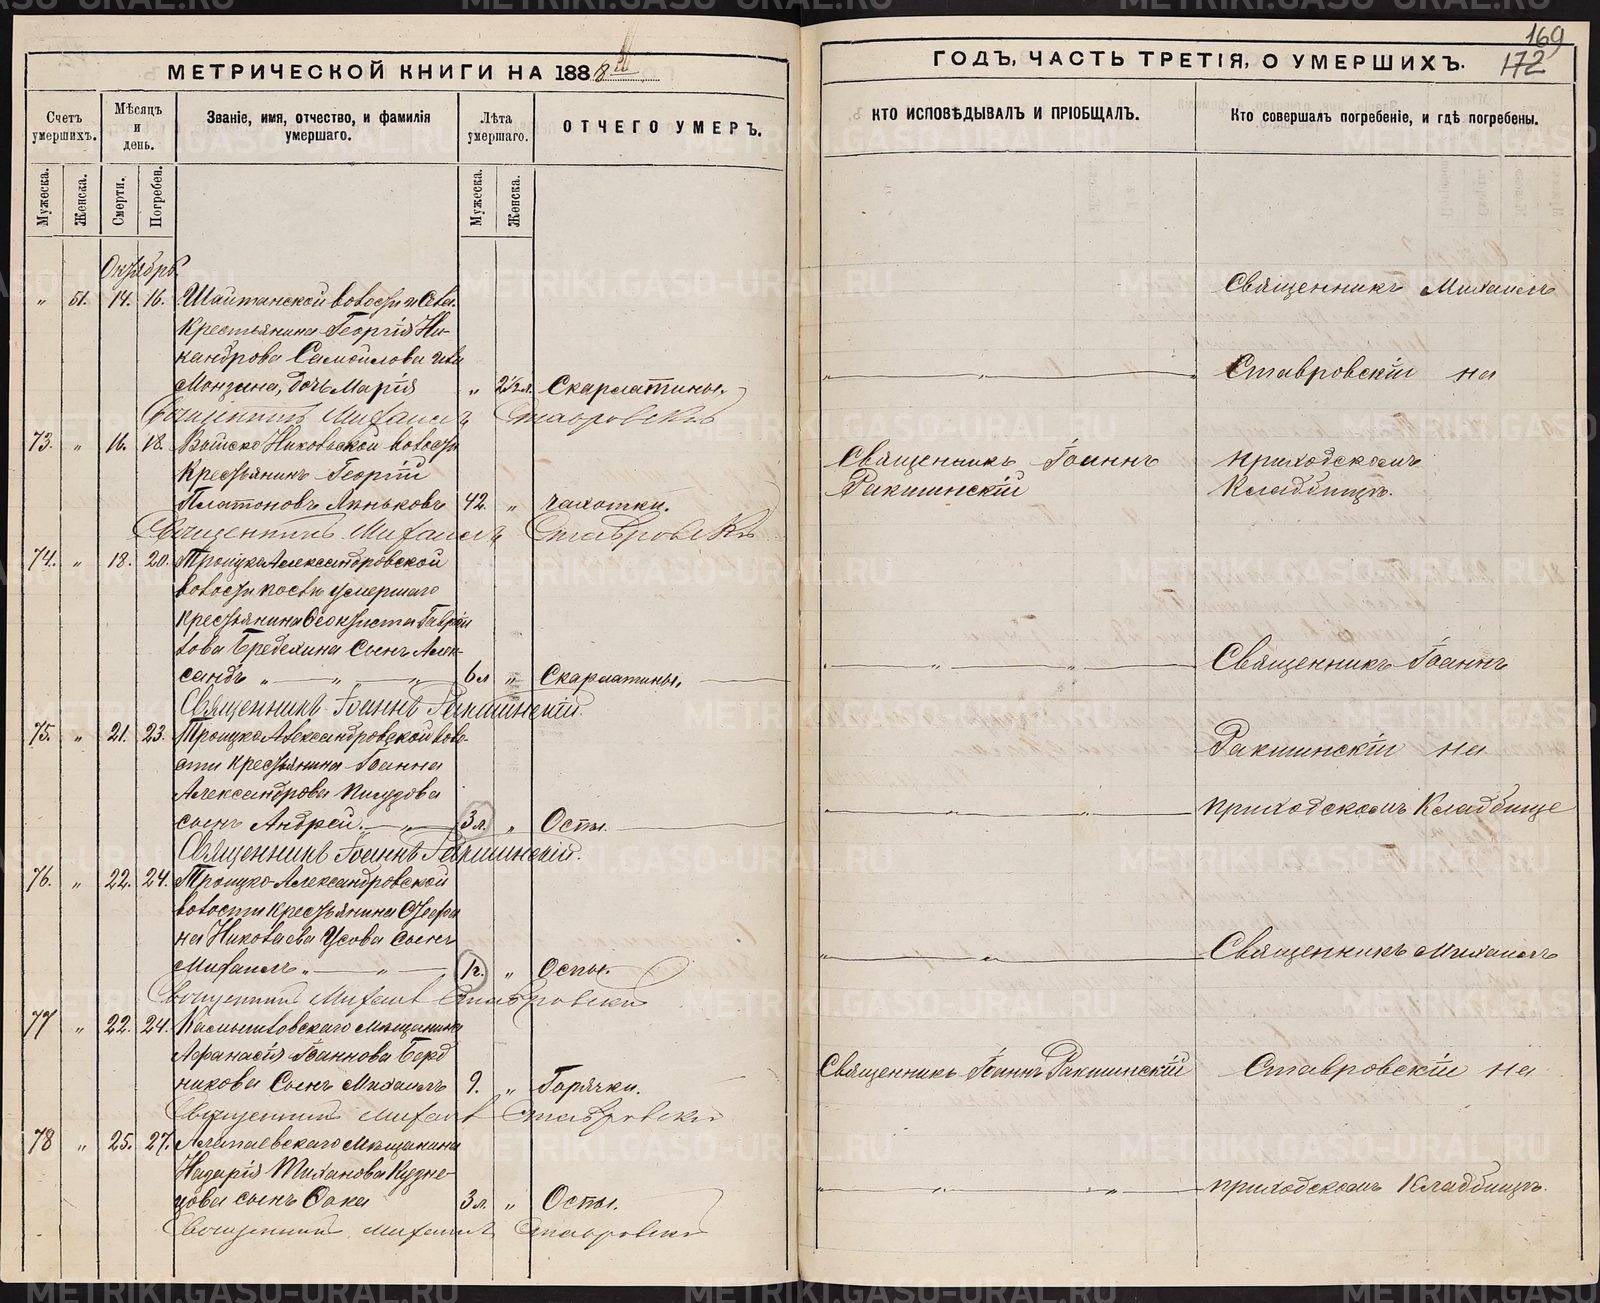 МЕТРИЧЕСКОЙ КНИГИ НА 1888й
Счетъ умершихъ.
Мѣсяцъ и день.
Званіе, имя, отчество, и фамилія умершаго.
Лѣта умершаго.
ОТЧЕГО УМЕРЪ.
Мужеска.
Женска.
Смерти.
Погребен.
Мужеска.
Женска.
Октябрь
" 51. 14. 16. Шайтанской волости
Крестьянина Георгія Ни-
кандрова Самойлова
дочь Марія " 2½ л. Скарлатины.
Священникъ Михаилъ Ставровскій
73. " 16. 18. Никольской волости
Крестьянинъ Георгій
Платоновъ 42. " Чахотки.
Священникъ Михаилъ Ставровскій
74. " 18. 20. Троицко Александровской
волости послѣ умершаго
Крестьянина Феоктиста Гаврил
лова сынъ Алек-
сандръ " " " 6 л " Скарлатины.
Священникъ Іоаннъ Ракшинскій.
75. " 21. 23. Троицко Александровской воло-
сти крестьянина Іоанна
Александрова
сынъ Андрей. " 3 л. " Оспы.
Священникъ Іоаннъ Ракшинскій.
76. " 22. 24. Троицко-Александровской
волости крестьянина Стефа
на Николаева Усова сынъ
Михаилъ " " 1 г. " Оспы.
Священникъ Михаилъ Ставровскій
77 " 22. 24. Камышловскаго мѣщанина
Афанасія Іоаннова Берд
никова Сынъ Михаилъ 9. " Горячки.
Священникъ Михаилъ Ставровскій
78 " 25. 27. Алапаевскаго мѣщанина
Назарія Тиханова Кузне-
цова сынъ 3 л. " Оспы.
Священникъ Михаилъ Ставровскій
169
172
ГОДЪ, ЧАСТЬ ТРЕТІЯ, О УМЕРШИХЪ.
КТО ИСПОВѢДЫВАЛЪ И ПРІОБЩАЛЪ.
Кто совершалъ погребеніе, и гдѣ погребены.
Священникъ Михаилъ
" " Ставровскій на
Священникъ Іоаннъ приходскомъ
Ракшинскій Кладбищѣ.
" " Священникъ Іоаннъ
Ракшинскій на
" приходскомъ Кладбище
" " Священникъ Михаилъ
Священникъ Іоаннъ Ракшинскій Ставровскій на
" " " приходскомъ Кладбищѣ.
METRIKI.GASO-URAL.RU